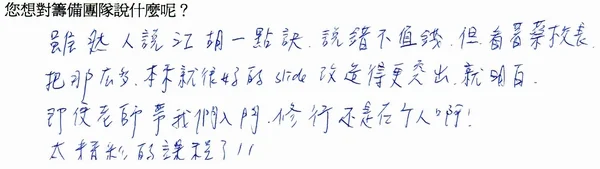 您想對籌備團隊說什麼呢？
雖然人說江湖一點訣，說錯不值錢，但看著蔡校長，
把那麼多，本來就很好的 slide 改造得更突出，就明白，
即使老師帶我們入門，修行還是在个人啊！
太精彩的課程了!!